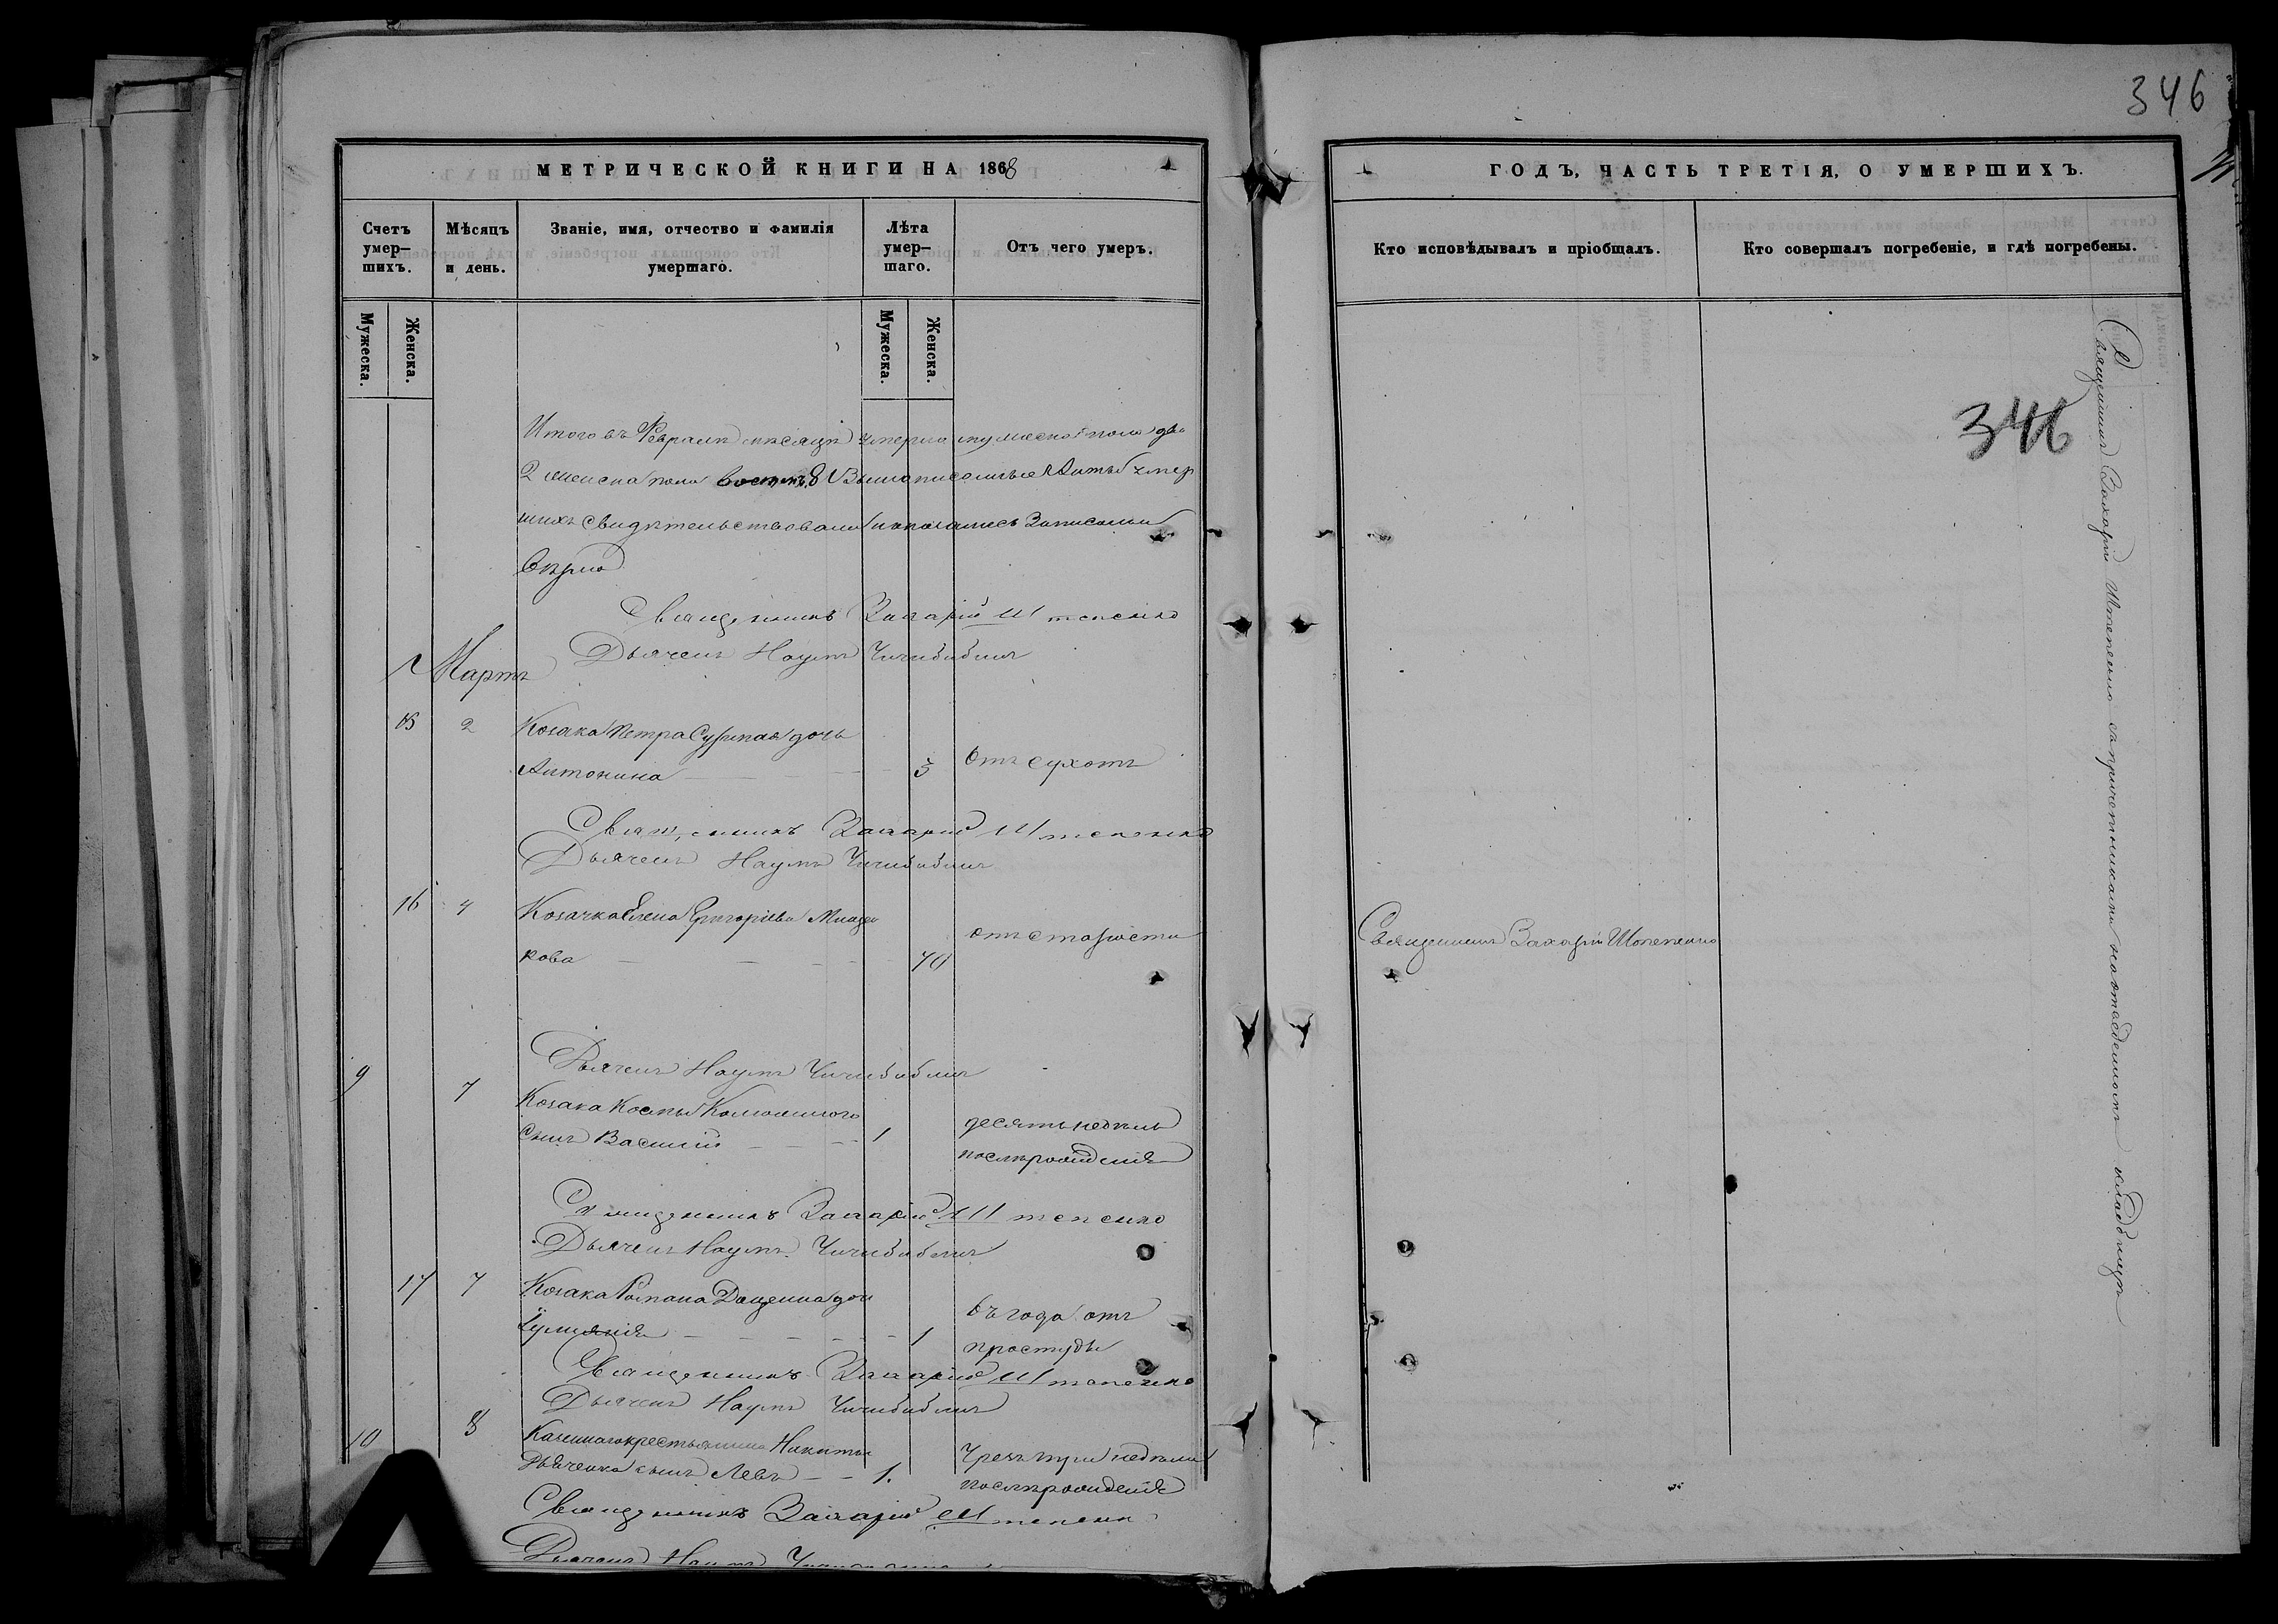 346
МЕТРИЧЕСКОЙ КНИГИ НА 1868
ГОДЪ, ЧАСТЬ ТРЕТІЯ, О УМЕРШИХЪ.
Счетъ умер-шихъ.
Мѣсяцъ и день.
Званіе, имя, отчество и фамилія умершаго.
Лѣта умер-шаго.
Отъ чего умеръ.
Кто исповѣдывалъ и пріобщалъ.
Кто совершалъ погребеніе, и гдѣ погребены.
Мужеска.
Женска.
Мужеска.
Женска.
346
Итого въ Февралѣ мѣсяцѣ умерло мужеска пола два
2 женска пола восемь 8 Вышеписанныя Актъ умер
шихъ свидѣтельствовали Записаны
вѣрно
Священникъ Захарій Штепенко
Дьячекъ Наумъ
Мартъ
15 2 Козака Петра дочь
Антонина 3 Отъ сухотъ
Священникъ Захарій Штепенко
Дьячекъ Наумъ
16 4 Козачка Елена Григоріева
кова 70 отъ старости
Священникъ Захарій Штепенко
Дьячекъ Наумъ
9 7 Козака Космы
сынъ Василій 1 десять недѣль
послѣ рожденія
Священникъ Захарій Штепенко
Дьячекъ Наумъ
17 7 Козака Романа Даценка дочь
1 въ года отъ
простуды
Священникъ Захарій Штепенко
Дьячекъ Наумъ
10 8 Казеннаго крестьянина Никиты
Дьяченка сынъ Левъ 1. Чрезъ три недѣли
послѣ рожденія
Священникъ Захарій Штепенко
Дьячекъ Наумъ
Священникъ Захарій Штепенко съ причетниками на кладбищѣ